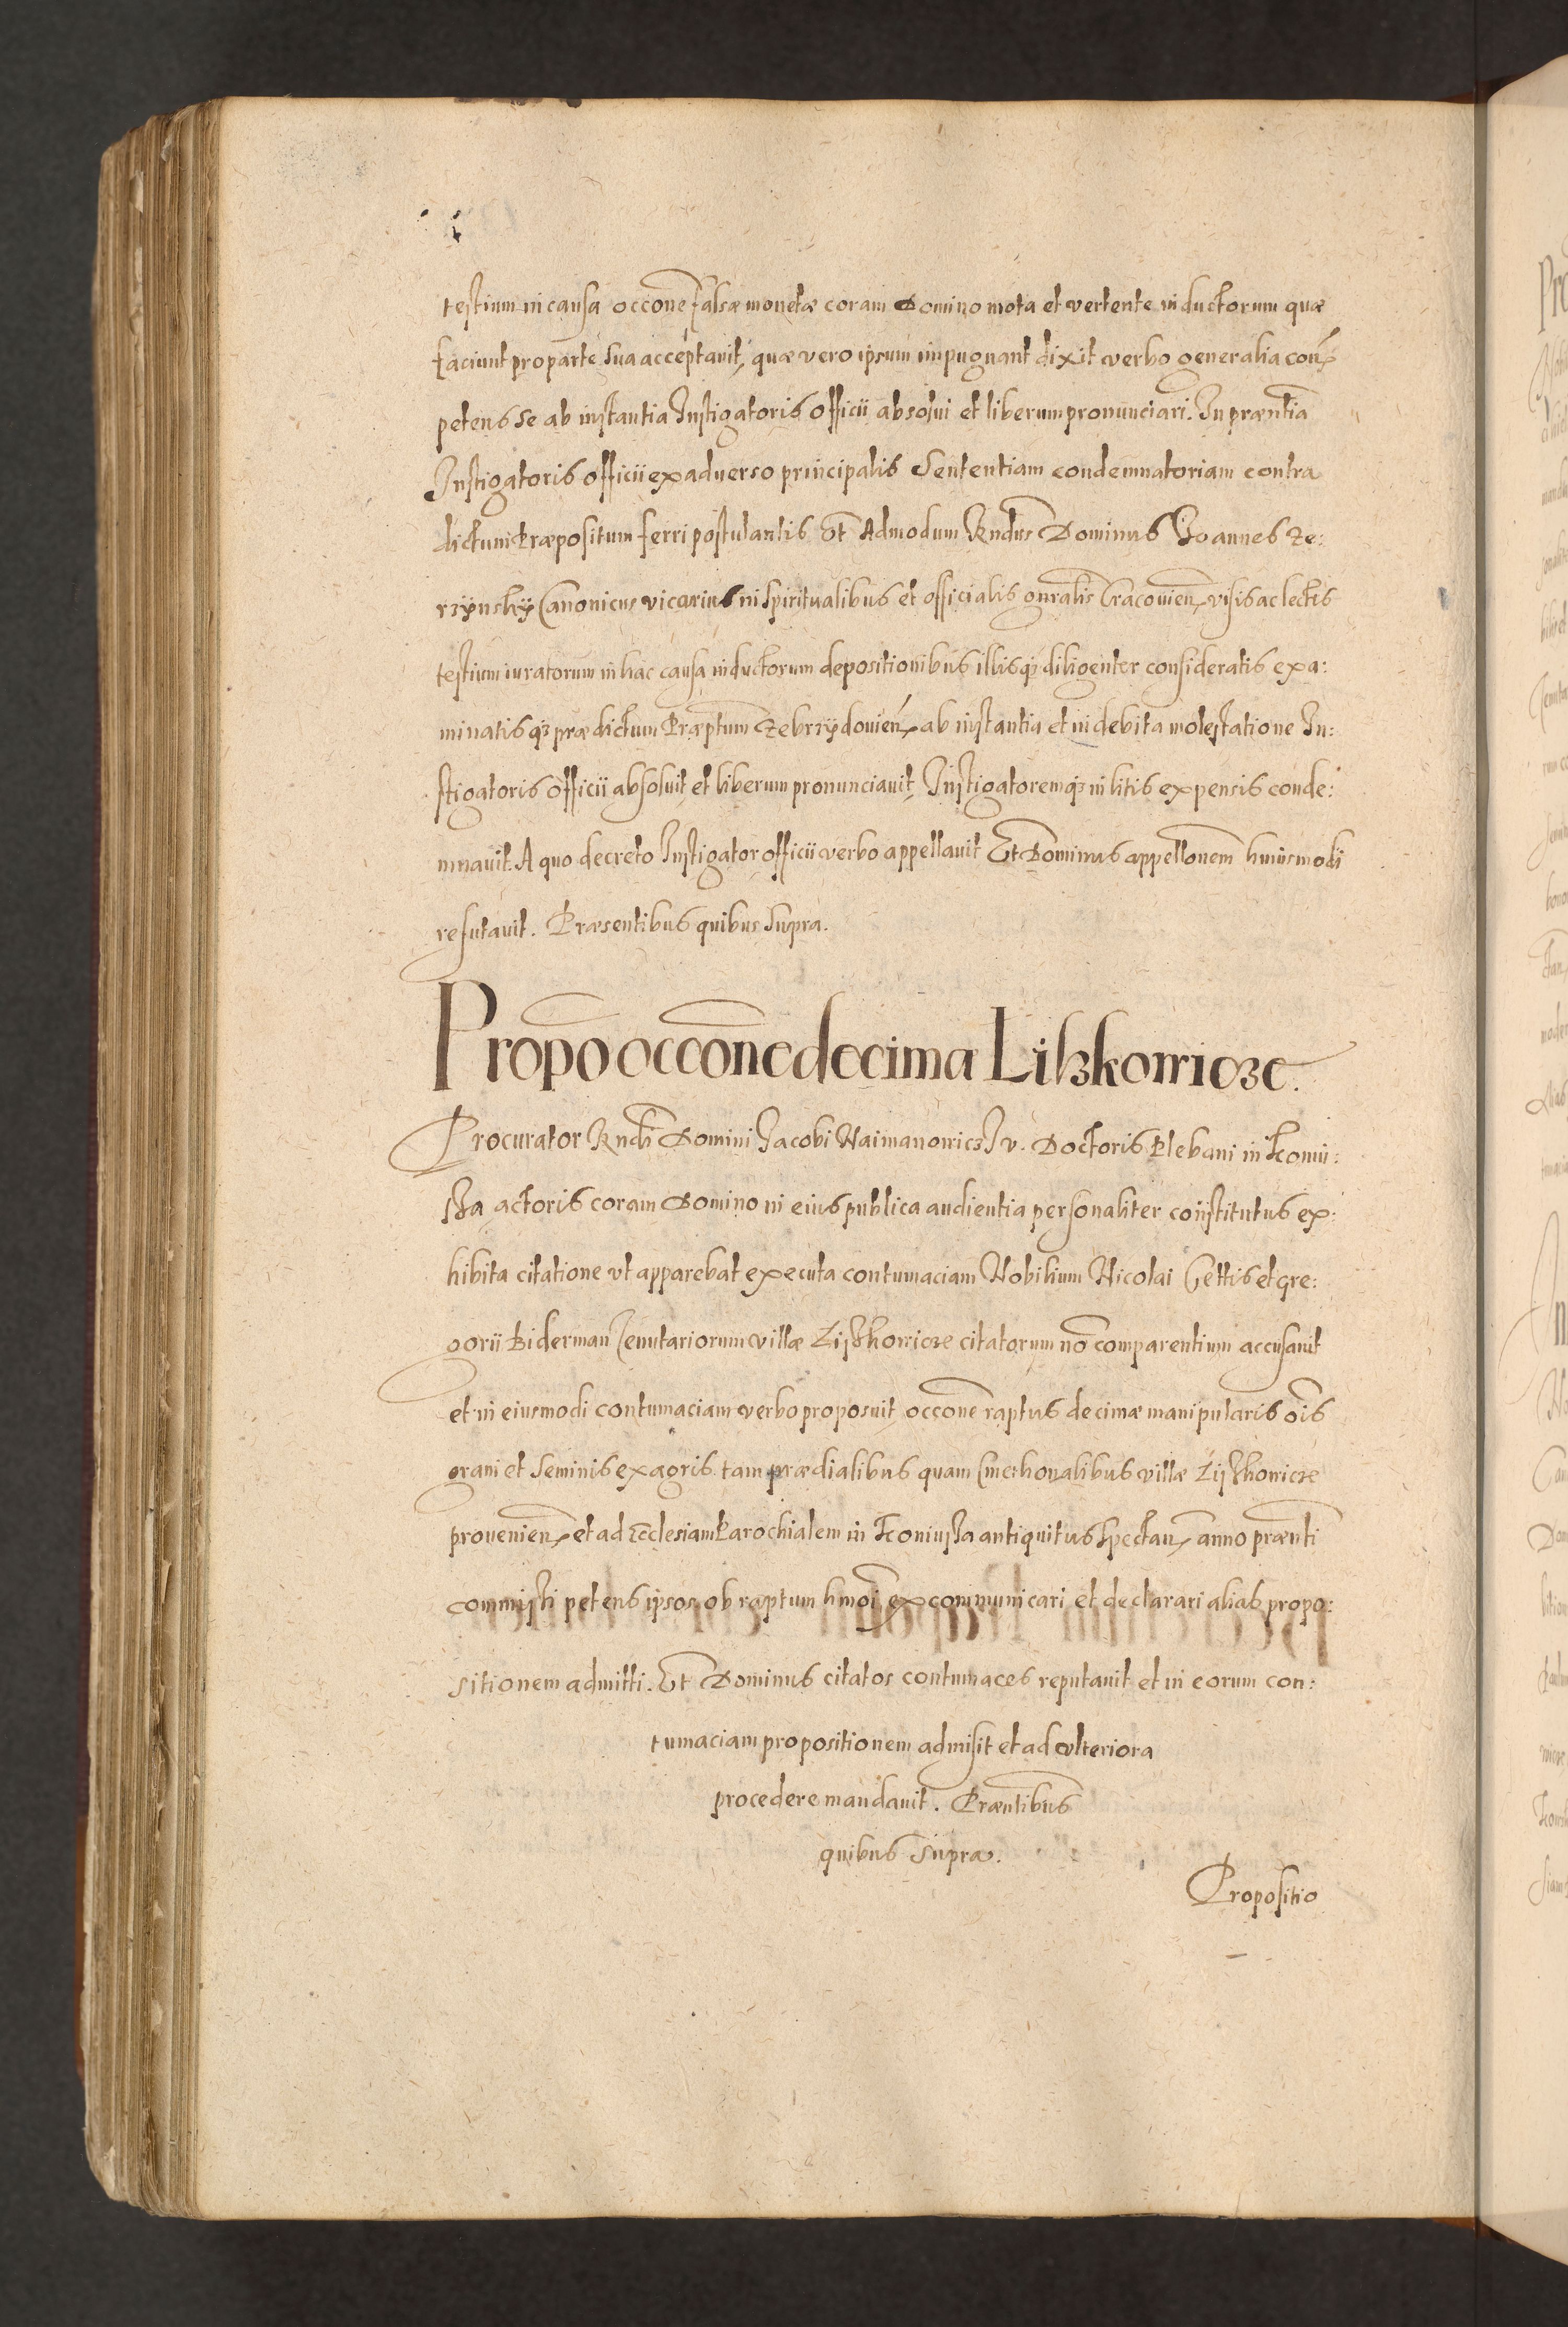 testium in causa occone falsæ monetæ coram Domino mota et vertente inductorum quæ
faciunt pro parte sua acceptavit, quæ vero ipsum impugnant dixit verbo generalia con
petens se ab instantia Instigatoris officii absolui et liberum pronunciari. In præntia
Instigatoris officii ex aduerso principalis Sententiam condemnatoriam contra
dictum Præpositum ferri postulantis Et Admodum Rndus Dominus Joannes Ze:
rzÿnskÿ Canonicus vicarius in Spiritualibus et officialis gnralis Cracouien visis ac lectis
testium iuratorum in hac causa inductorum depositionibus illisq diligenter consideratis exa:
minatisq prædictum Præptum Zebrzÿdouien ab instantia et indebita molestatione In:
stigatoris officii absoluit, et liberum pronunciauit, Instigatoremq in litis expensis conde:
mnauit. A quo decreto Instigator officii verbo appellauit Et Dominus appellonem huiusmodi
refutauit. Præsentibus quibus supra.
Propo occone decima Liszkowicze.
Procurator Rndi Domini Jacobi Naimanowicz J. v. Doctoris Plebani in Koniu:
sza actoris coram Domino in eius publica audientia personaliter coñstitutus ex:
hibita citatione vt apparebat executa contumaciam Nobilium Nicolai Cettis et Gre:
gorii Biderman Tenutariorum villæ Lÿszkowicze citatorum no comparentium accusauit
et in eiusmodi contumaciam verbo proposuit occone raptus decimæ manipularis ois
grani et Seminis ex agris tam prædialibus quam Cmethonalibus villæ Lÿszkowicze
prouenien et ad Ecclesiam Parochialem in Koniusza antiquitus spectan anno prænti
commissi petens ipsos ob raptum hmoi excommunicari et declarari alias propo:
sitionem admitti. Et Dominus citatos contumaces reputauit et in eorum con:
tumaciam propositionem admisit et ad vlteriora
procedere mandauit. Præntibus
quibus supra.
Propositio